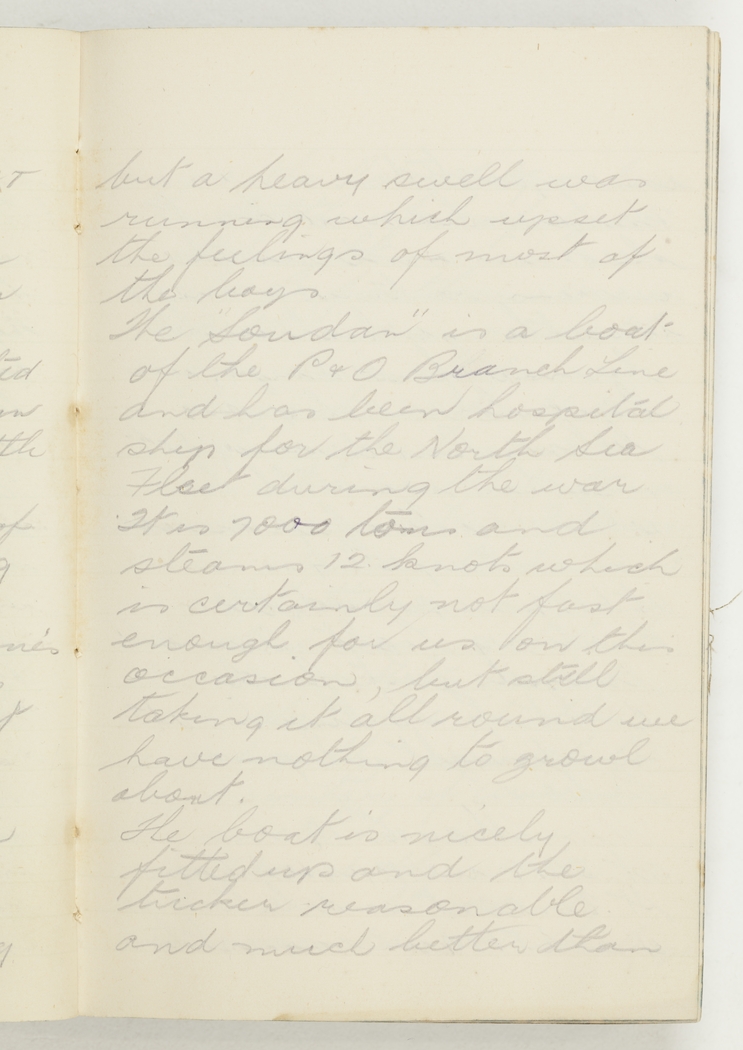 but a heavy swell was
running which upset
the feelings of most of
the boys
The "Soudan" is a boat
of the P & O Branch Line
and has been hospital
ship for the North Sea
Fleet during the war
It is 7000 tons and
steams 12 knots which
is certainly not fast
enough for us on this
occasion, but still
taking it all round we
have nothing to growl
about.
The boat is nicely
fitted up and the
tucker reasonable
and much better than